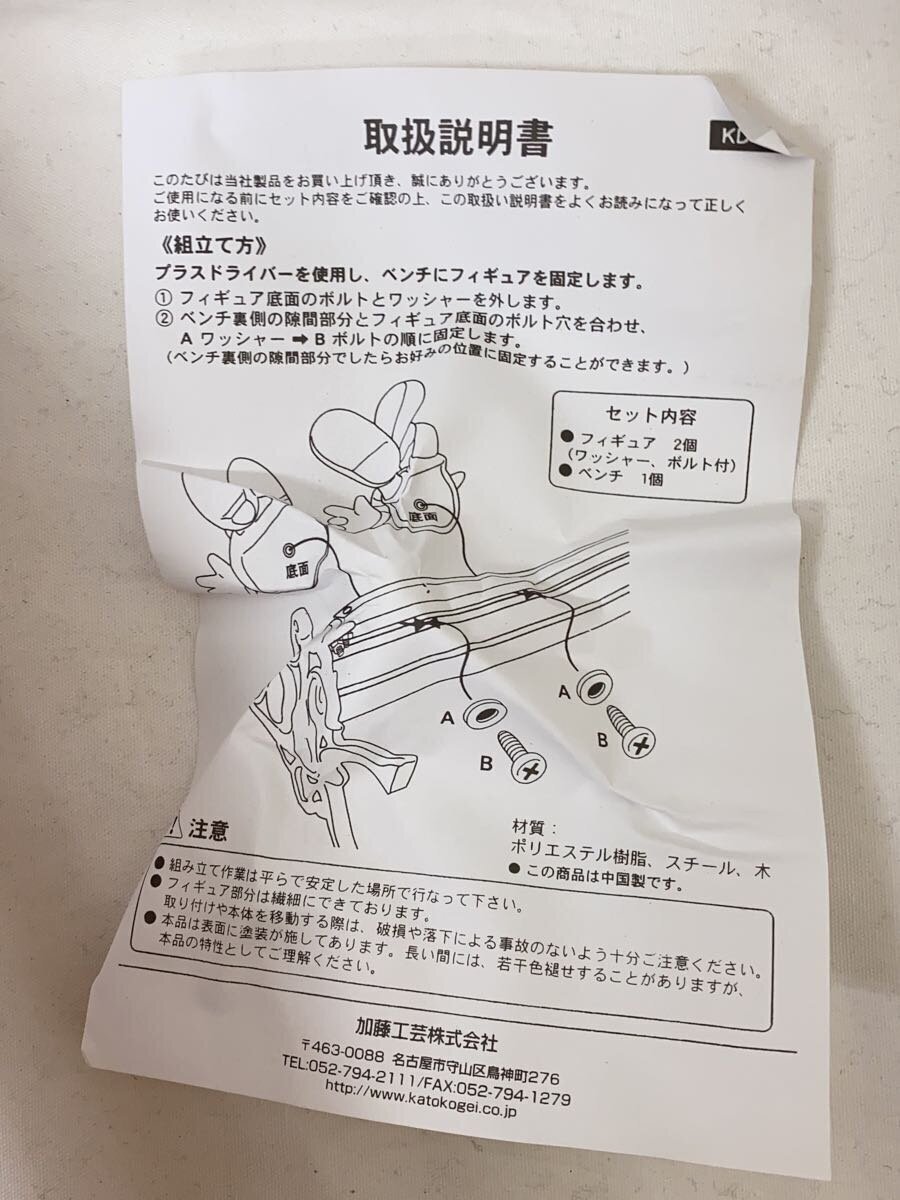 取扱説明書
KD
このたびは当社製品をお買い上げ頂き、誠にありがとうございます。
ご使用になる前にセット内容をご確認の上、この取扱い説明書をよくお読みになって正しく
お使いください。
《組立て方》
プラスドライバーを使用し、ベンチにフィギュアを固定します。
① フィギュア底面のボルトとワッシャーを外します。
② ベンチ裏側の隙間部分とフィギュア底面のボルト穴を合わせ、
A ワッシャー ➡ B ボルトの順に固定します。
(ベンチ裏側の隙間部分でしたらお好みの位置に固定することができます。)
セット内容
● フィギュア 2個
(ワッシャー、ボルト付)
● ベンチ 1個
底面
底面
A
B
A
B
注意
材質:
ポリエステル樹脂、スチール、木
● この商品は中国製です。
● 組み立て作業は平らで安定した場所で行なって下さい。
● フィギュア部分は繊細にできております。
取り付けや本体を移動する際は、破損や落下による事故のないよう十分ご注意ください。
● 本品は表面に塗装が施してあります。長い間には、若干色褪せすることがありますが、
本品の特性としてご理解ください。
加藤工芸株式会社
〒463-0088 名古屋市守山区鳥神町276
TEL:052-794-2111/FAX:052-794-1279
http://www.katokogei.co.jp